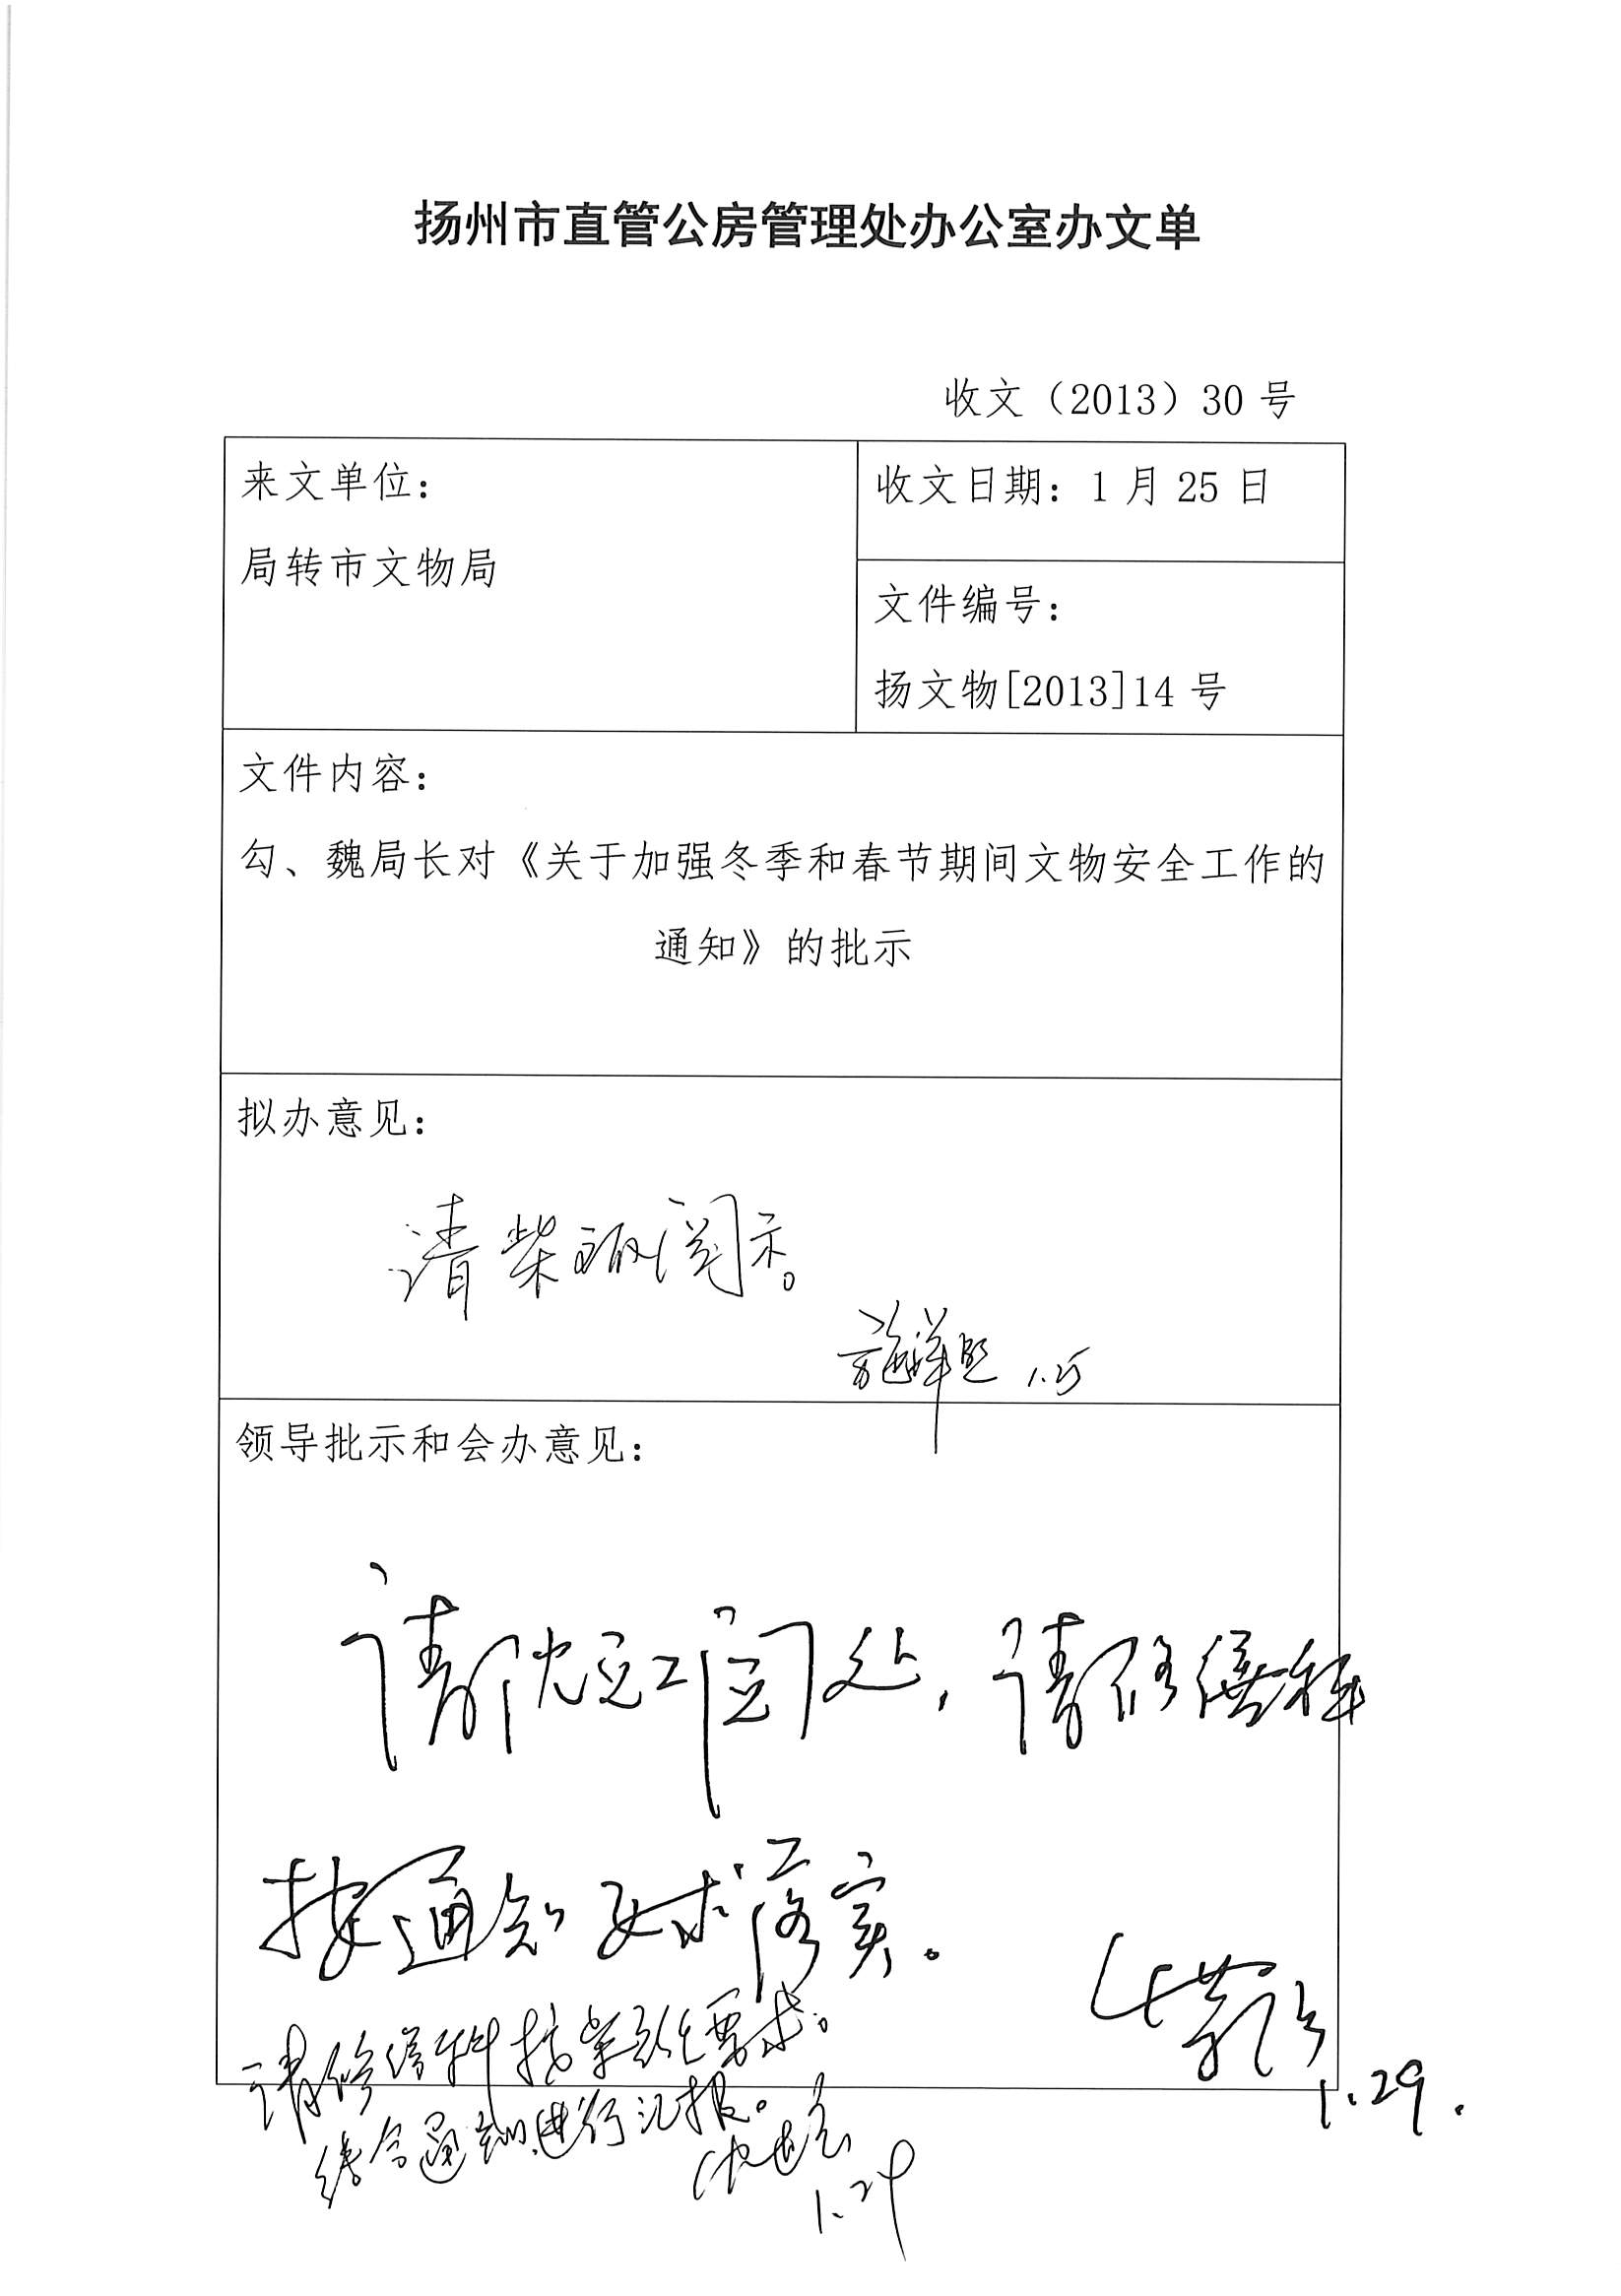 扬州市直管公房管理处办公室办文单
收文（2013）30 号
来文单位：
局转市文物局
收文日期：1 月 25 日
文件编号：
扬文物[2013]14 号
文件内容：
勾、魏局长对《关于加强冬季和春节期间文物安全工作的
通知》的批示
拟办意见：
请柴 阅示。
1.25
领导批示和会办意见：
请 阅处，请修缮科
按通知要求落实。
1.29.
请修缮科按 要求。
结合通知进行汇报。
1.29